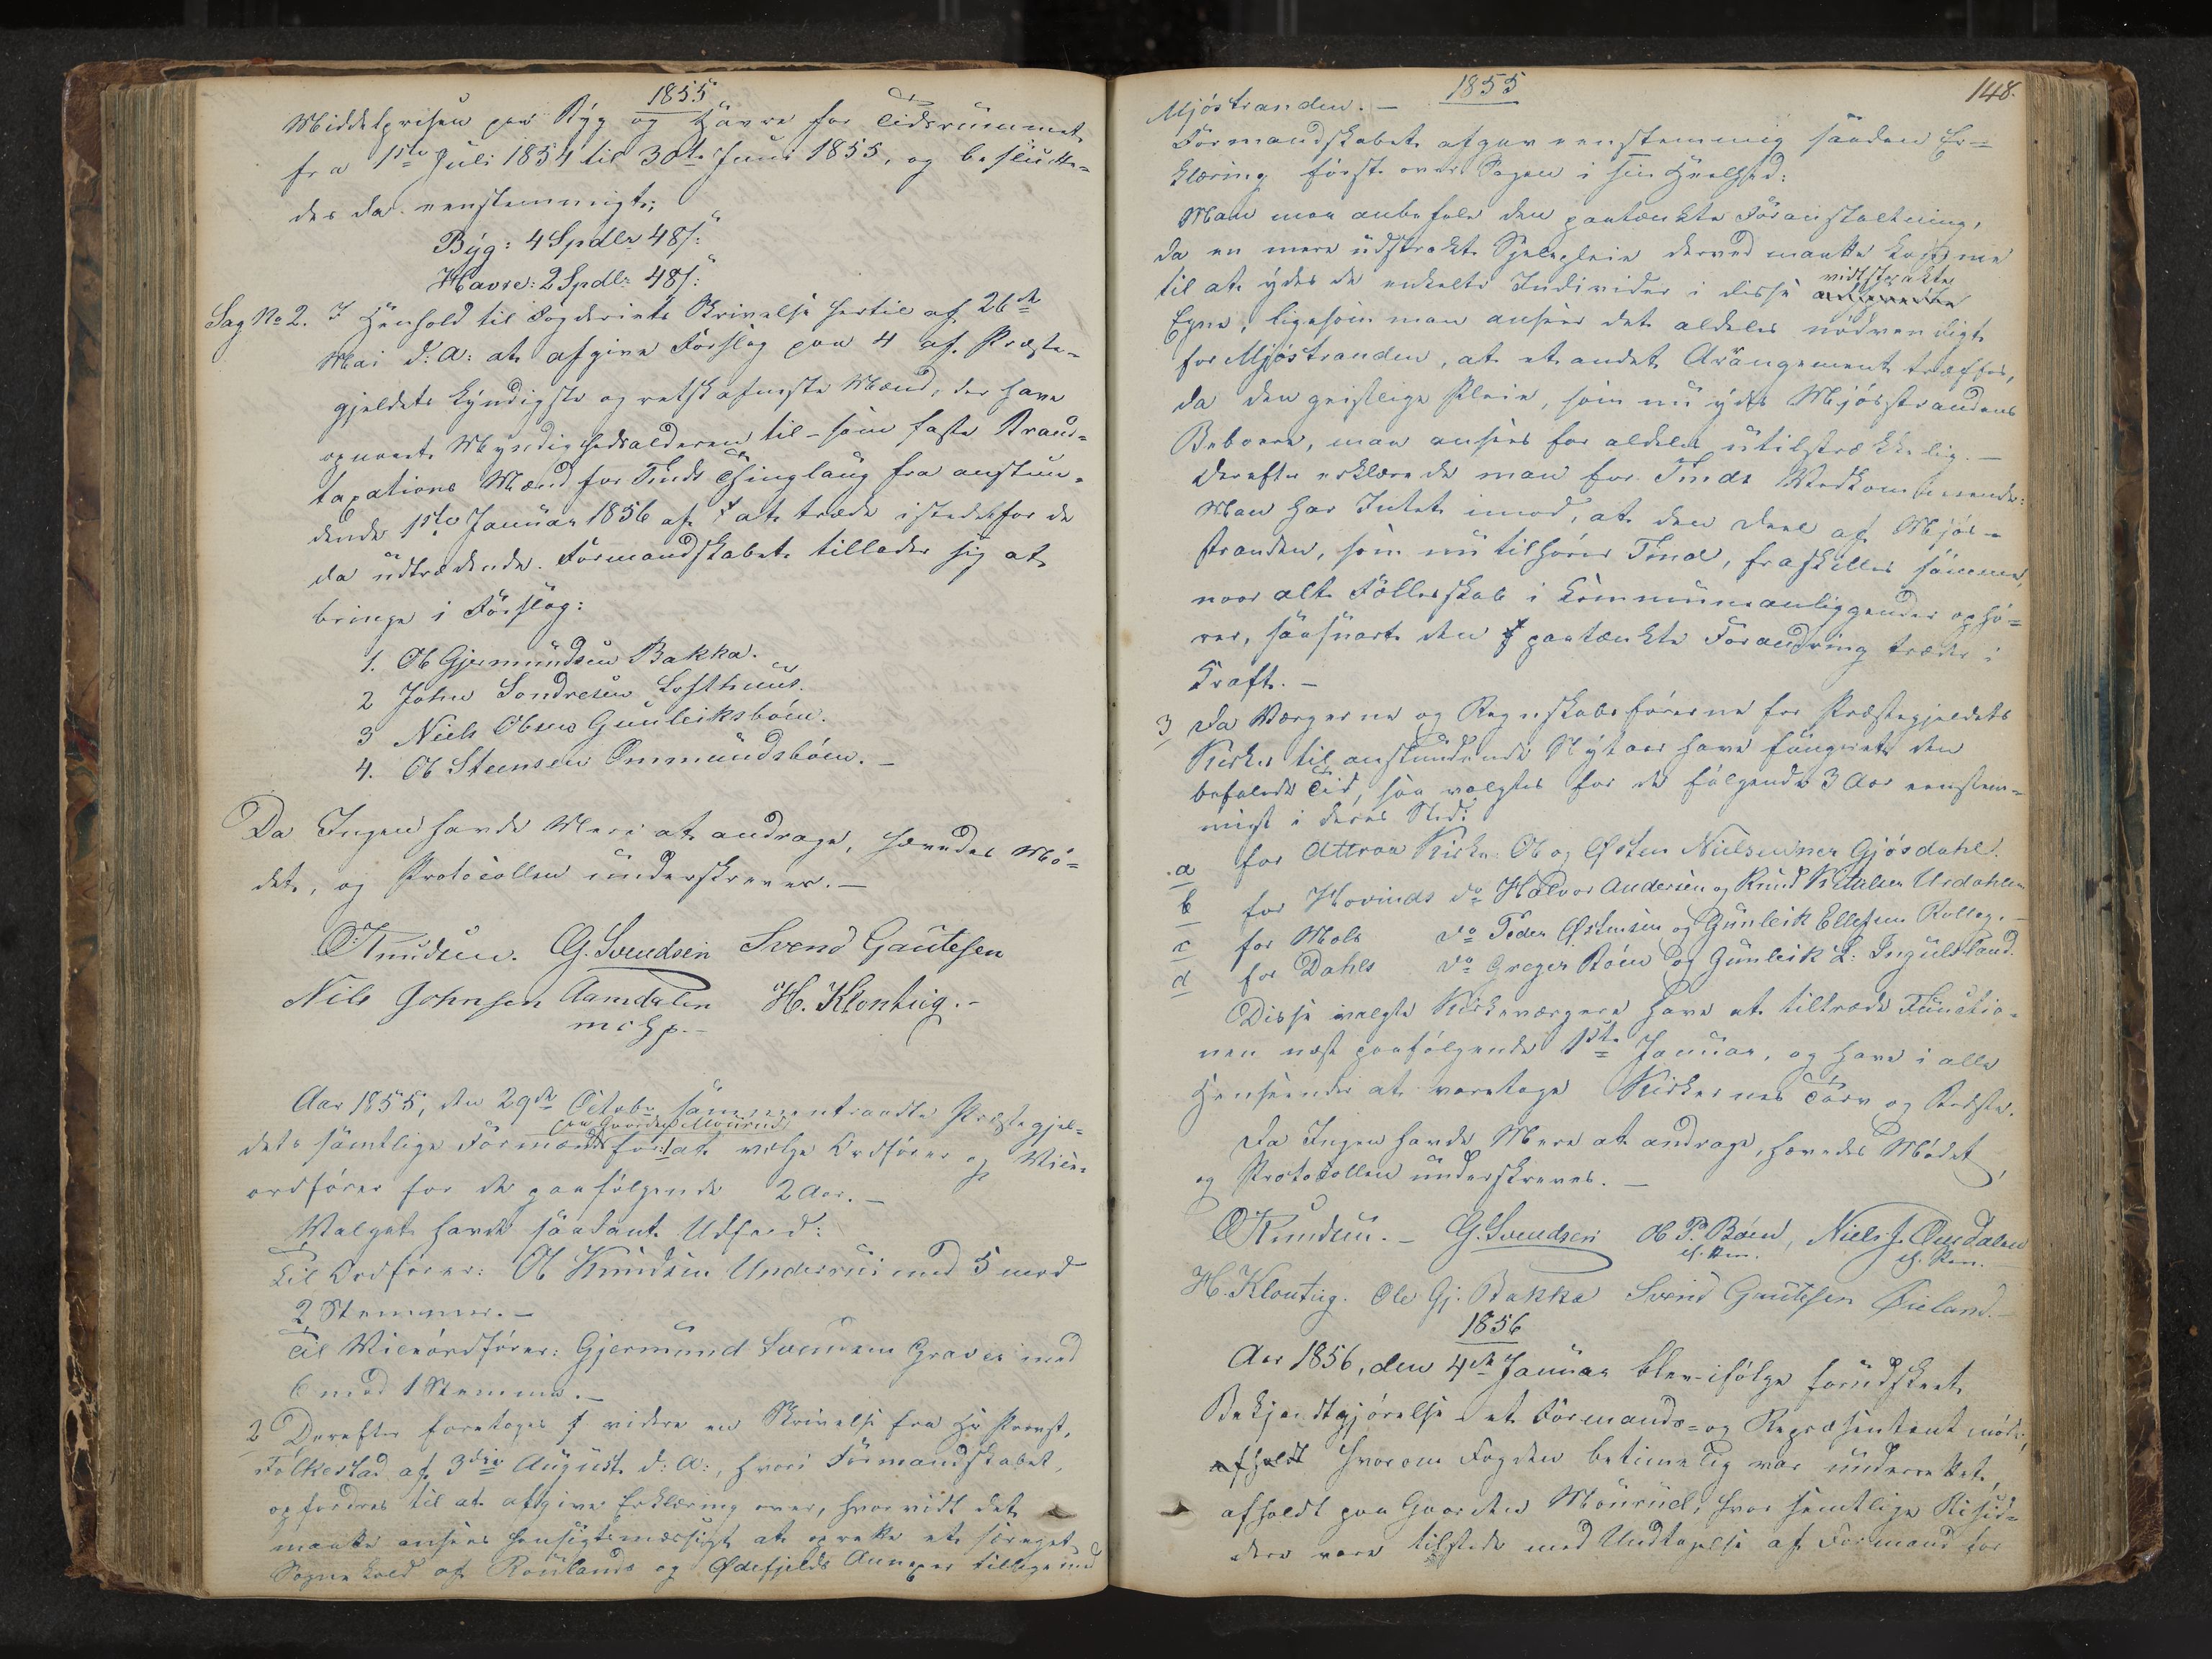 1855
Middelprisen paa Byg og Havre for Tidsrummet
fra 1ste Juli 1854 til 30te Juni 1855, og beslutte-
des da eenstemmigt:
Byg: 4 Spdlr 48 s:
Havre: 2 Spdlr 48 s:
Sag No 2. I Henhold til Fogderiets Skrivelse hertil af 26de
Mai d: A: at afgive Forslag paa 4 af Præste-
gjeldets kyndigste og retskafneste Mænd, der have
opnaaet Myndighedsalderen til - som faste Brand-
taxations Mænd for Tinds Thinglaug fra anstun-
dende 1ste Januar 1856 af at træde istedetfor de
da udtrædende. Formandskabet tillader sig at
bringe i Forslag:
1. Ole Gjermundsen Bakka.
2 John Sondresen Lofthuus.
3 Niels Olsen Gunleiksbøen.
4. Ole Steensen Ommundsbøen. -
Da Ingen havde Mere at andrage, hævedes Mø-
det, og Protocollen underskreves. -
O Knudsen. G. Svendsen Svend Gautesen
Nils Johnsen Aamdalen H. Klontvig. -
m i h p. -
Aar 1855, den 29de Octobr sammentraadte Præstegjel-
paa Gaarden Mouerud
dets samtlige Formænd for at vælge Ordfører og Vice-
ordfører for de paafølgende 2 Aar. -
Valget havde saadant Udfald:
Til Ordfører: Ole Knudsen Undersui med 5 mod
2 Stemmer. -
Til Viceordfører: Gjermund Svendsen Graver med
6 mod 1 Stemme. -
2 Derefter foretoges videre en Skrivelse fra Hr Provst,
Folkestad af 3die August d: A:, hvori Formandskabet
opfordres til at afgive Erklæring over, hvorvidt det
maatte ansees hensigtsmæssigt at oprette et særeget
Sognekald af Roulands og Ødefjelds Annexer tilligemed
1855 148.
Mjøsstranden. -
Formandskabet afgav eenstemmig saadan Er-
klæring først over Sagen i sin Heelhed:
Man maa anbefale den paatænkte Foranstaltning,
da en mere udstrakt Sjelepleie derved maatte komme
vidtstrakte
til at ydes de enkelte Individer i disse
Egne, ligesom man anseer det aldeles nødvendigt
for Mjøsstranden, at et andet Arrangement træffes,
da den geistlige Pleie, som nu ydes Mjøsstrandens
Beboere, maa ansees for aldeles utilstrækkelig. -
Derefter erklærede man for Tinds Vedkommende:
Man har Intet imod, at den Deel af Mjøs-
stranden, som nu tilhører Tind, fraskilles samme,
naar alt Fællesskab i Kommuneanliggender ophø-
rer, saasnart den paatænkte Forandring træder i
Kraft. -
3 Da Værgerne og Regnskabsførerne for Præstegjeldets
Kirker til anstundende Nytaar have fungeret den
befalede Tid, saa valgtes for de følgende 3 Aar eenstem-
migt i deres Sted:
a for Attraa Kirke: Ole og Østen Nielsenner Gjøsdahl.
b for Hovinds do Halvor Andersen og Knud Kittilsen Urdahlen
c for Mæls do Peder Østensen og Gunleik Ellefsen Rollag. -
d for Dahls do Greger Bøen og Gunleik L: Ingulsland.
Disse valgte Kirkeværgere have at tiltræde Functio-
nen næst paafølgende 1ste Januar, og have i alle
Henseender at varetage Kirkernes Tarv og Bedste.
Da Ingen havde Mere at andrage, hævedes Mødet,
og Protocollen underskreves. -
O Knudsen. - G. Svendsen Ole P. Bøen, Niels J. Omdalen
H. Klontvig. Ole Gj. Bakka Svend Gautesen Øieland. -
1856
Aar 1856, den 4de Januar blev ifølge forudskeet
Bekjendtgjørelse et Formands- og Repræsentantmøde,
afholdt hvorom Fogden betimelig var underrettet,
afholdt paa Gaarden Mouerud, hvor samtlige
vare tilstede med Undtagelse af Formand for